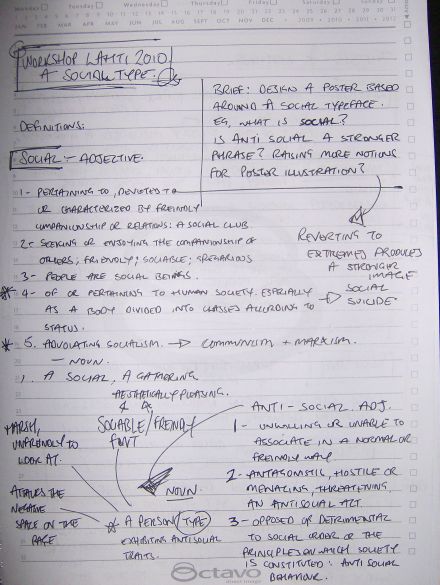 Monday
Tuesday
Wednesday
Thursday
Friday
Saturday
Sunday
JAN FEB MAR APR MAY JUN JUL AUG SEPT OCT NOV DEC 2009 2010 2011 2012
WORKSHOP LAHTI 2010
A SOCIAL TYPE.
BRIEF: DESIGN A POSTER BASED
AROUND A SOCIAL TYPEFACE.
EG, WHAT IS SOCIAL?
IS ANTI SOCIAL A STRONGER
PHRASE? RAISING MORE NOTIONS
FOR POSTER ILLUSTRATION?
DEFINITIONS:
SOCIAL :- ADJECTIVE.
1- PERTAINING TO, DEVOTED TO
OR CHARACTERIZED BY FREINDLY
COMPANIONSHIP OR RELATIONS: A SOCIAL CLUB
2- SEEKING OR ENJOYING THE COMPANIONSHIP OF
OTHERS; FRIENDLY; SOCIABLE; GREGARIOUS
3- PEOPLE ARE SOCIAL BEINGS.
* 4- OF OR PERTAINING TO HUMAN SOCIETY. ESPECIALLY
AS A BODY DIVIDED INTO CLASSES ACCORDING TO
STATUS.
* 5. ADVOCATING SOCIALISM. → COMMUNISM + MARXISM.
- NOUN.
1. A SOCIAL, A GATHERING
REVERTING TO
EXTREMES PRODUCES
A STRONGER
IMAGE
→ SOCIAL
SUICIDE
AESTHETICALLY PLEASING.
SOCIABLE/FREINDLY
FONT
HARSH,
UNFREINDLY TO
LOOK AT.
ATTACKS THE
NEGATIVE
SPACE ON THE
PAGE
NOUN.
* A PERSON (TYPE)
EXHIBITING ANTISOCIAL
TRAITS.
ANTI-SOCIAL. ADJ.
1- UNWILLING OR UNABLE TO
ASSOCIATE IN A NORMAL OR
FREINDLY WAY
2- ANTAGONISTIC, HOSTILE OR
MENACING, THREATENING
AN ANTISOCIAL ACT.
3- OPPOSED OR DETRIMENTAL
TO SOCIAL ORDER OR THE
PRINCIPLES ON WHICH SOCIETY
IS CONSTITUTED: ANTI SOCIAL
BEHAVIOUR.
Octavo